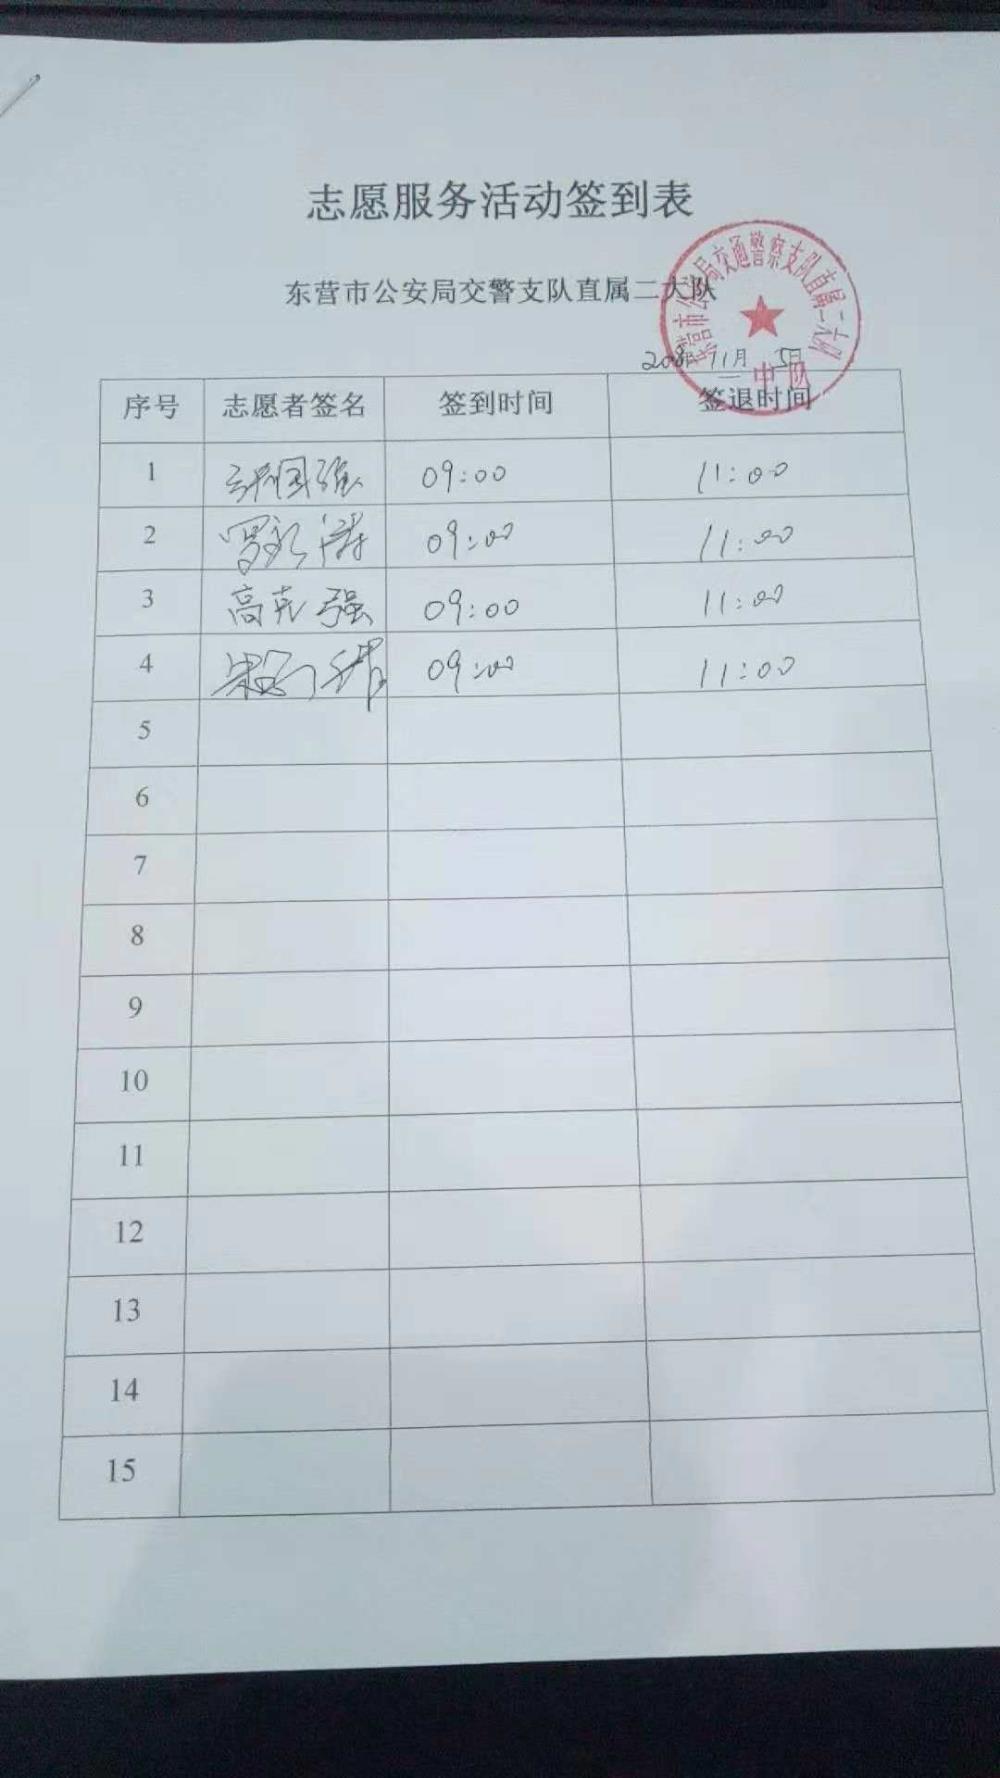 志愿服务活动签到表
东营市公安局交警支队直属二大队
东营市公安局交通警察支队直属二大队
中队
11月5日
序号 志愿者签名 签到时间 签退时间
1 国强 09:00 11:00
2 罗 09:00 11:00
3 高克强 09:00 11:00
4 09:00 11:00
5
6
7
8
9
10
11
12
13
14
15